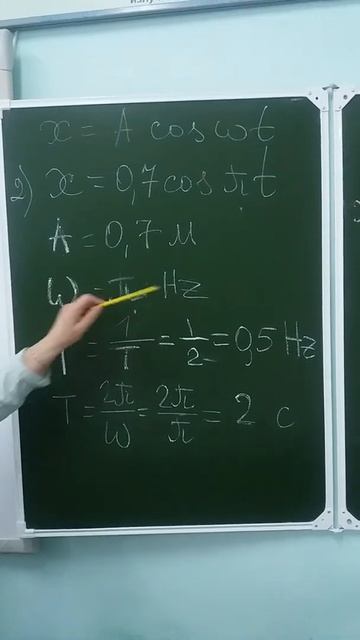 x = A cos ωt
2) x = 0,7 cos πt
A = 0,7 м
ω = π Hz
= 1/T = 1/2 = 0,5 Hz
T = 2π/ω = 2π/π = 2 c